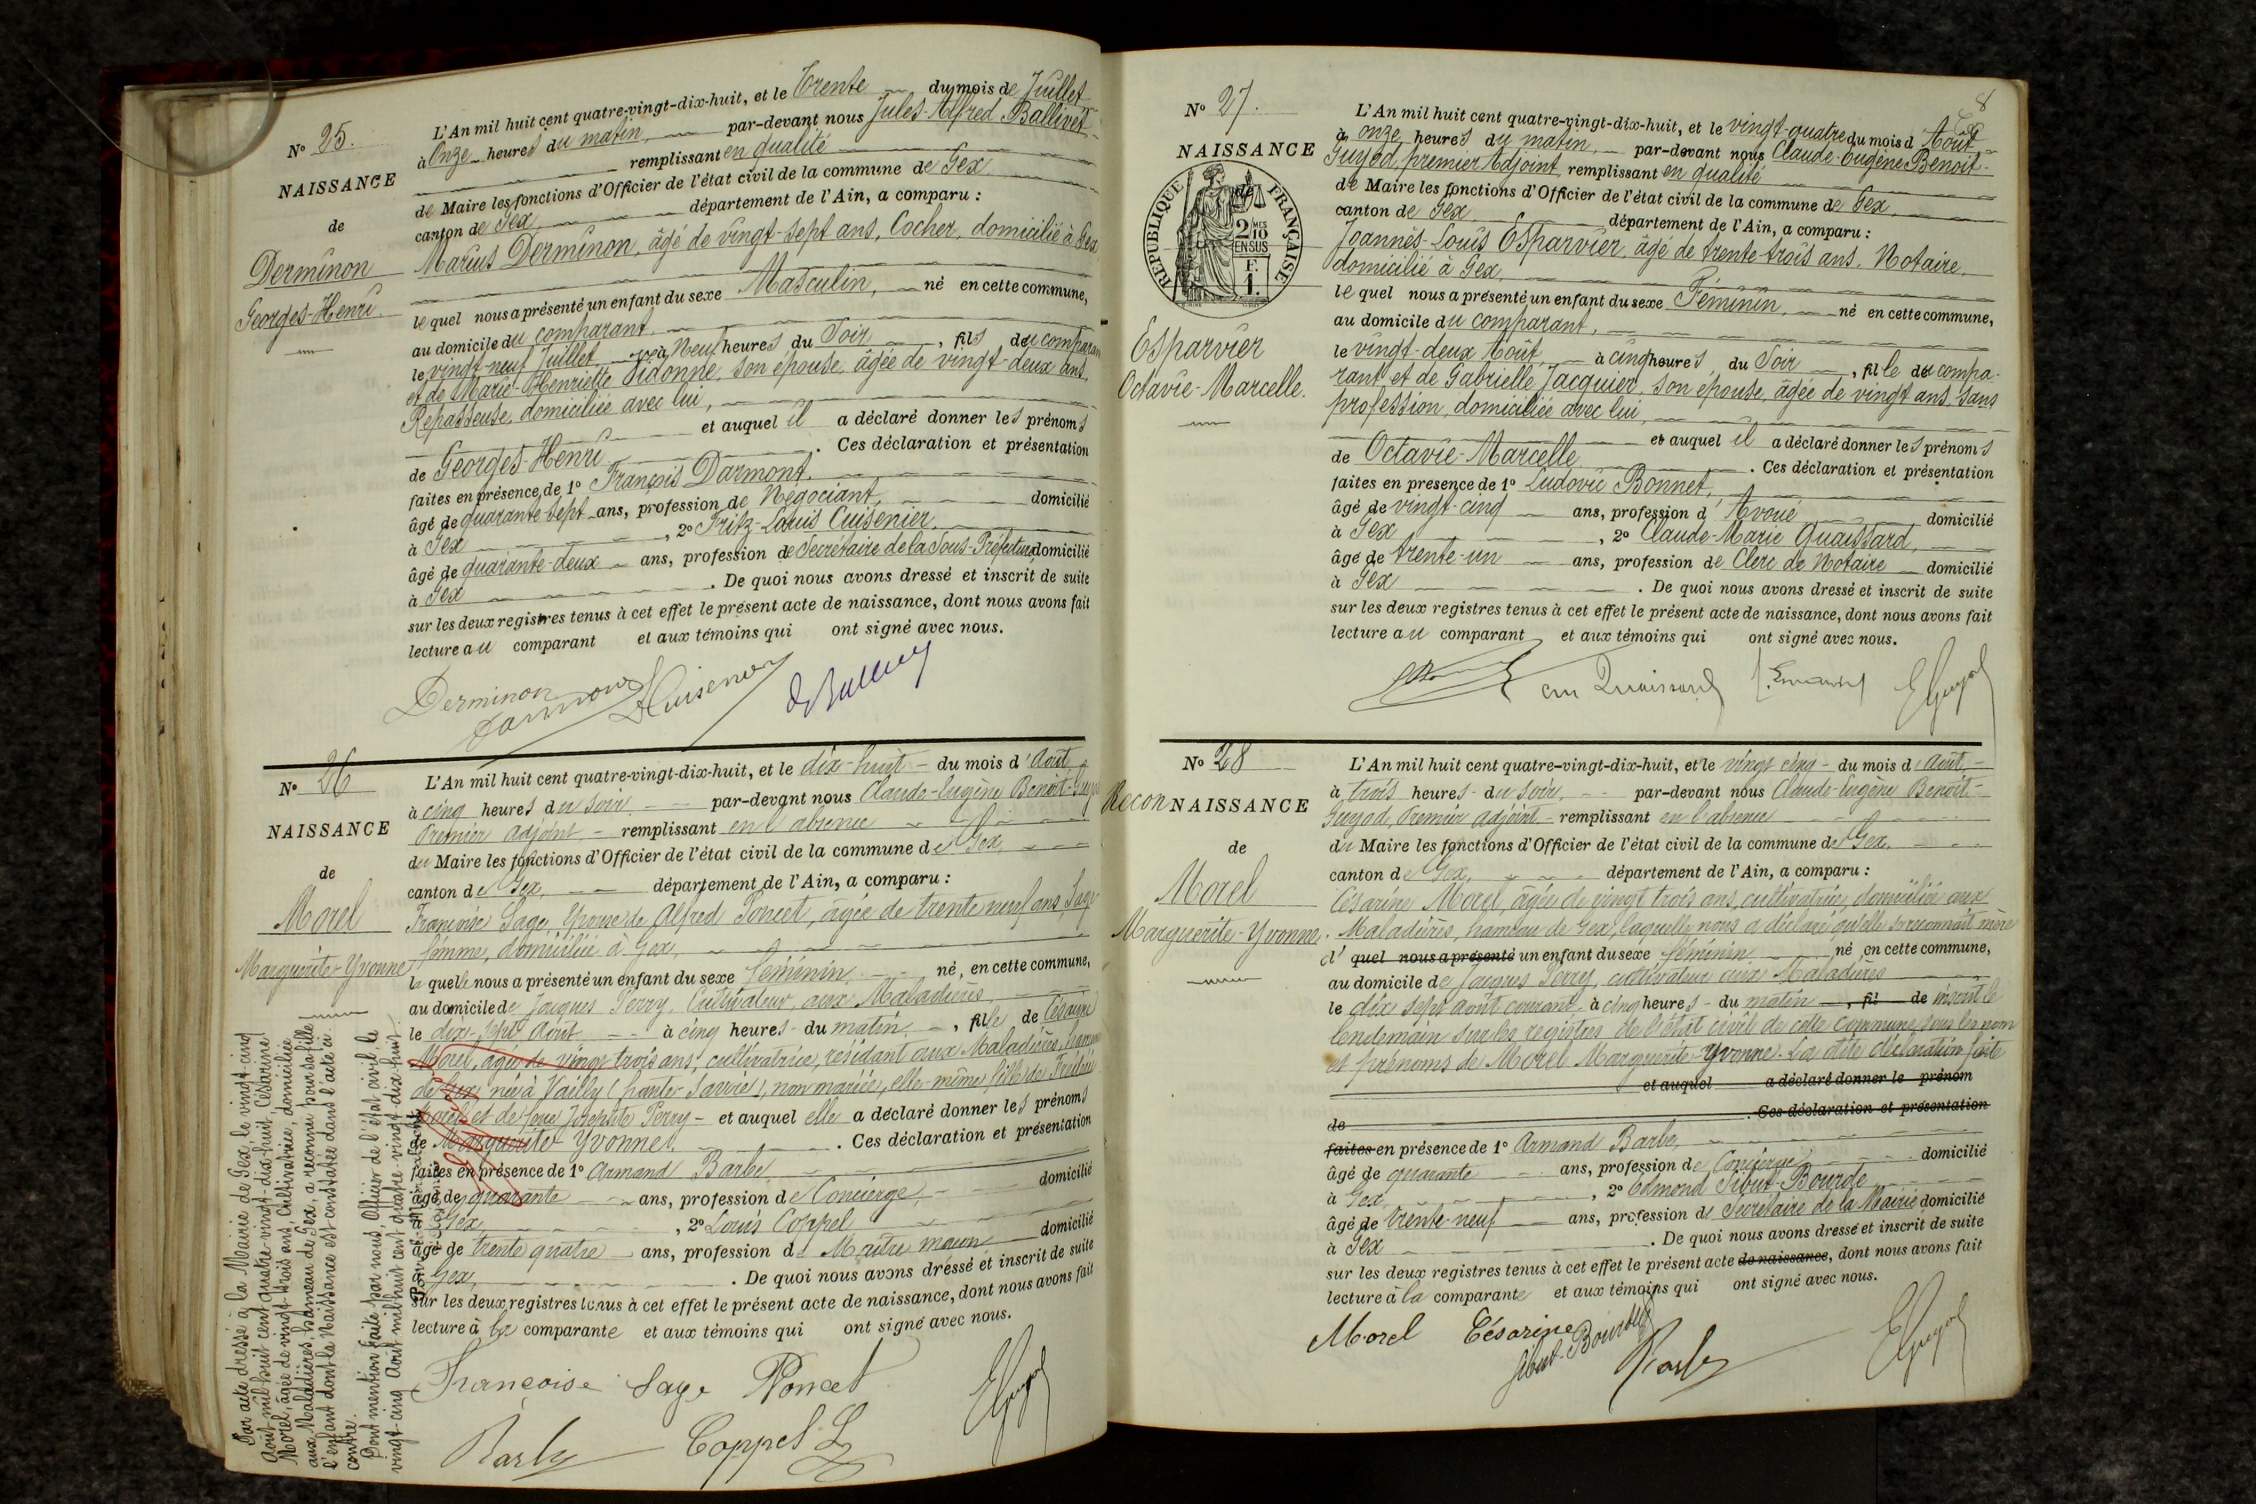 N° 25.
NAISSANCE
de
Derminon
Georges-Henri.
L'An mil huit cent quatre-vingt-dix-huit, et le Trente du mois de Juillet
à Onze heures du matin, par-devant nous Jules-Alfred Ballivet
remplissant en qualité
de Maire les fonctions d'Officier de l'état civil de la commune de Gex
canton de Gex, département de l'Ain, a comparu :
Marius Derminon, âgé de vingt-sept ans, Cocher, domicilié à Gex
lequel nous a présenté un enfant du sexe Masculin, né en cette commune,
au domicile du comparant,
le vingt-neuf Juillet à Neuf heures du Soir, fils du comparant
et de Marie-Henriette Sidonne, son épouse, âgée de vingt-deux ans,
Repasseuse, domiciliée avec lui,
et auquel il a déclaré donner les prénoms
de Georges-Henri . Ces déclaration et présentation
faites en présence de 1° François Darmont,
âgé de quarante-sept ans, profession de Négociant, domicilié
à Gex , 2° Fritz-Louis Cuisenier,
âgé de quarante-deux ans, profession de Secrétaire de la Sous-Préfecture domicilié
à Gex . De quoi nous avons dressé et inscrit de suite
sur les deux registres tenus à cet effet le présent acte de naissance, dont nous avons fait
lecture au comparant et aux témoins qui ont signé avec nous.
Derminon
Cuisenier
N° 26
NAISSANCE
de
Morel
Marguerite-Yvonne
L'An mil huit cent quatre-vingt-dix-huit, et le dix-huit du mois d'Août
à cinq heures du soir par-devant nous Claude-Eugène Benoit-Guyod
Premier adjoint remplissant en l'absence
du Maire les fonctions d'Officier de l'état civil de la commune de Gex
canton de Gex, département de l'Ain, a comparu :
Françoise Sage, épouse de Alfred Poncet, âgée de trente neuf ans, Sage
femme, domiciliée à Gex,
laquelle nous a présenté un enfant du sexe féminin né, en cette commune,
au domicile de Jacques Perry, Cultivateur, aux Maladières,
le dix-sept Août à cinq heures du matin, fille de Césarine
Morel, âgée de vingt trois ans, cultivatrice, résidant aux Maladières, hameau
de Gex, née à Vailly (haute-Savoie), non mariée, elle-même fille de Frédéric
Morel et de Josephte Perry et auquel elle a déclaré donner les prénoms
de Marguerite-Yvonne. . Ces déclaration et présentation
faites en présence de 1° Armand Barbe,
âgé de quarante ans, profession de Concierge, domicilié
à Gex , 2° Louis Coppel
âgé de trente quatre ans, profession de Maître maçon domicilié
à Gex, . De quoi nous avons dressé et inscrit de suite
sur les deux registres tenus à cet effet le présent acte de naissance, dont nous avons fait
lecture à la comparante et aux témoins qui ont signé avec nous.
Françoise Sage Poncet
Barbe Coppel L
EGuyod
Par acte dressé à la Mairie de Gex, le vingt-cinq
Août mil huit cent quatre-vingt-dix-huit, Césarine
Morel, âgée de vingt-trois ans, Cultivatrice, domiciliée
aux Maladières, hameau de Gex, a reconnu pour sa fille
l'enfant dont la Naissance est constatée dans l'acte ci-
contre.
Dont mention faite par nous, Officier de l'état civil, le
vingt-cinq Août mil huit cent quatre-vingt-dix-huit.
8
N° 27.
NAISSANCE
de
RÉPUBLIQUE FRANÇAISE
2/10 MES
EN SUS
F.
1.
Esparvier
Octavie-Marcelle.
L'An mil huit cent quatre-vingt-dix-huit, et le vingt-quatre du mois d'Août
à onze heures du matin, par-devant nous Claude-Eugène Benoit-
Guyod, premier Adjoint, remplissant en qualité
de Maire les fonctions d'Officier de l'état civil de la commune de Gex,
canton de Gex département de l'Ain, a comparu :
Joannès-Louis Esparvier, âgé de trente-trois ans, Notaire,
domicilié à Gex,
lequel nous a présenté un enfant du sexe Féminin, né en cette commune,
au domicile du comparant,
le vingt-deux Août, à cinq heures du Soir, fille du compa-
rant et de Gabrielle Jacquier, son épouse, âgée de vingt ans, sans
profession, domiciliée avec lui,
et auquel il a déclaré donner les prénoms
de Octavie-Marcelle . Ces déclaration et présentation
faites en presence de 1° Ludovic Bonnet,
âgé de vingt-cinq ans, profession d'Avoué domicilié
à Gex , 2° Claude-Marie Quaissard,
âgé de trente-un ans, profession de Clerc de Notaire domicilié
à Gex . De quoi nous avons dressé et inscrit de suite
sur les deux registres tenus à cet effet le présent acte de naissance, dont nous avons fait
lecture au comparant et aux témoins qui ont signé avec nous.
cm Quaissard
EGuyod
N° 28
Recon NAISSANCE
de
Morel
Marguerite-Yvonne.
L'An mil huit cent quatre-vingt-dix-huit, et le vingt cinq du mois d'août,
à trois heures du soir, par-devant nous Claude-Eugène Benoit-
Guyod, Premier adjoint remplissant en l'absence
du Maire les fonctions d'Officier de l'état civil de la commune de Gex.
canton de Gex, département de l'Ain, a comparu :
Césarine Morel, âgée de vingt trois ans, cultivatrice, domiciliée aux
Maladières, hameau de Gex, laquelle nous a déclaré qu'elle se reconnait mère
d' quel nous a présenté un enfant du sexe féminin né en cette commune,
au domicile de Jacques Perry, cultivateur aux Maladières
le dix sept août courant, à cinq heures du matin, fil de inscrit le
lendemain sur les registres de l'état civil de cette commune sous les nom
et prénoms de Morel Marguerite-Yvonne. La dite déclaration faite
et auquel a déclaré donner le prénom
de . Ces déclaration et présentation
faites en présence de 1° Armand Barbe,
âgé de quarante ans, profession de Concierge domicilié
à Gex, , 2° Edmond Sibut-Bourde
âgé de trente-neuf ans, profession de Secrétaire de la Mairie domicilié
à Gex . De quoi nous avons dressé et inscrit de suite
sur les deux registres tenus à cet effet le présent acte de naissance, dont nous avons fait
lecture à la comparante et aux témoins qui ont signé avec nous.
Morel Césarine
Sibut-Bourde
Barbe
EGuyod